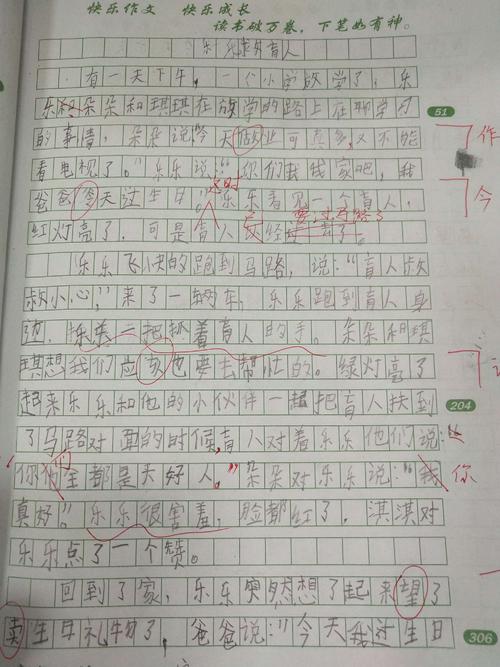 快乐作文 快乐成长
读书破万卷，下笔如有神。
乐乐扶盲人
有一天下午，一个小学放学了，乐
乐和朵朵和琪琪在放学的路上在聊学习
的事情，朵朵说：“今天做业可真多，又不能
看电视了。”乐乐说：“你们去我家吧，我
爸爸今天过生日。”乐乐看见一个盲人，
红灯亮了，可是盲人已经过去了。
要过马路了
乐乐飞快的跑到马路，说：“盲人叔
叔小心，”来了一辆车，乐乐跑到盲人身
边，乐乐一把抓着盲人的手。朵朵和琪
琪想我们应该也要去帮忙的。绿灯亮了
起来乐乐和他的小伙伴一起把盲人扶到
了马路对面的时候，盲人对着乐乐他们说：“
“你们全都是大好人。”朵朵对乐乐说：“我你
真好”。乐乐很害羞，脸都红了，淇淇对
乐乐点了一个赞。
回到了家，乐乐突然想了起来望了
卖生日礼物了，爸爸说：“今天我过生日
51
作
今
204
306